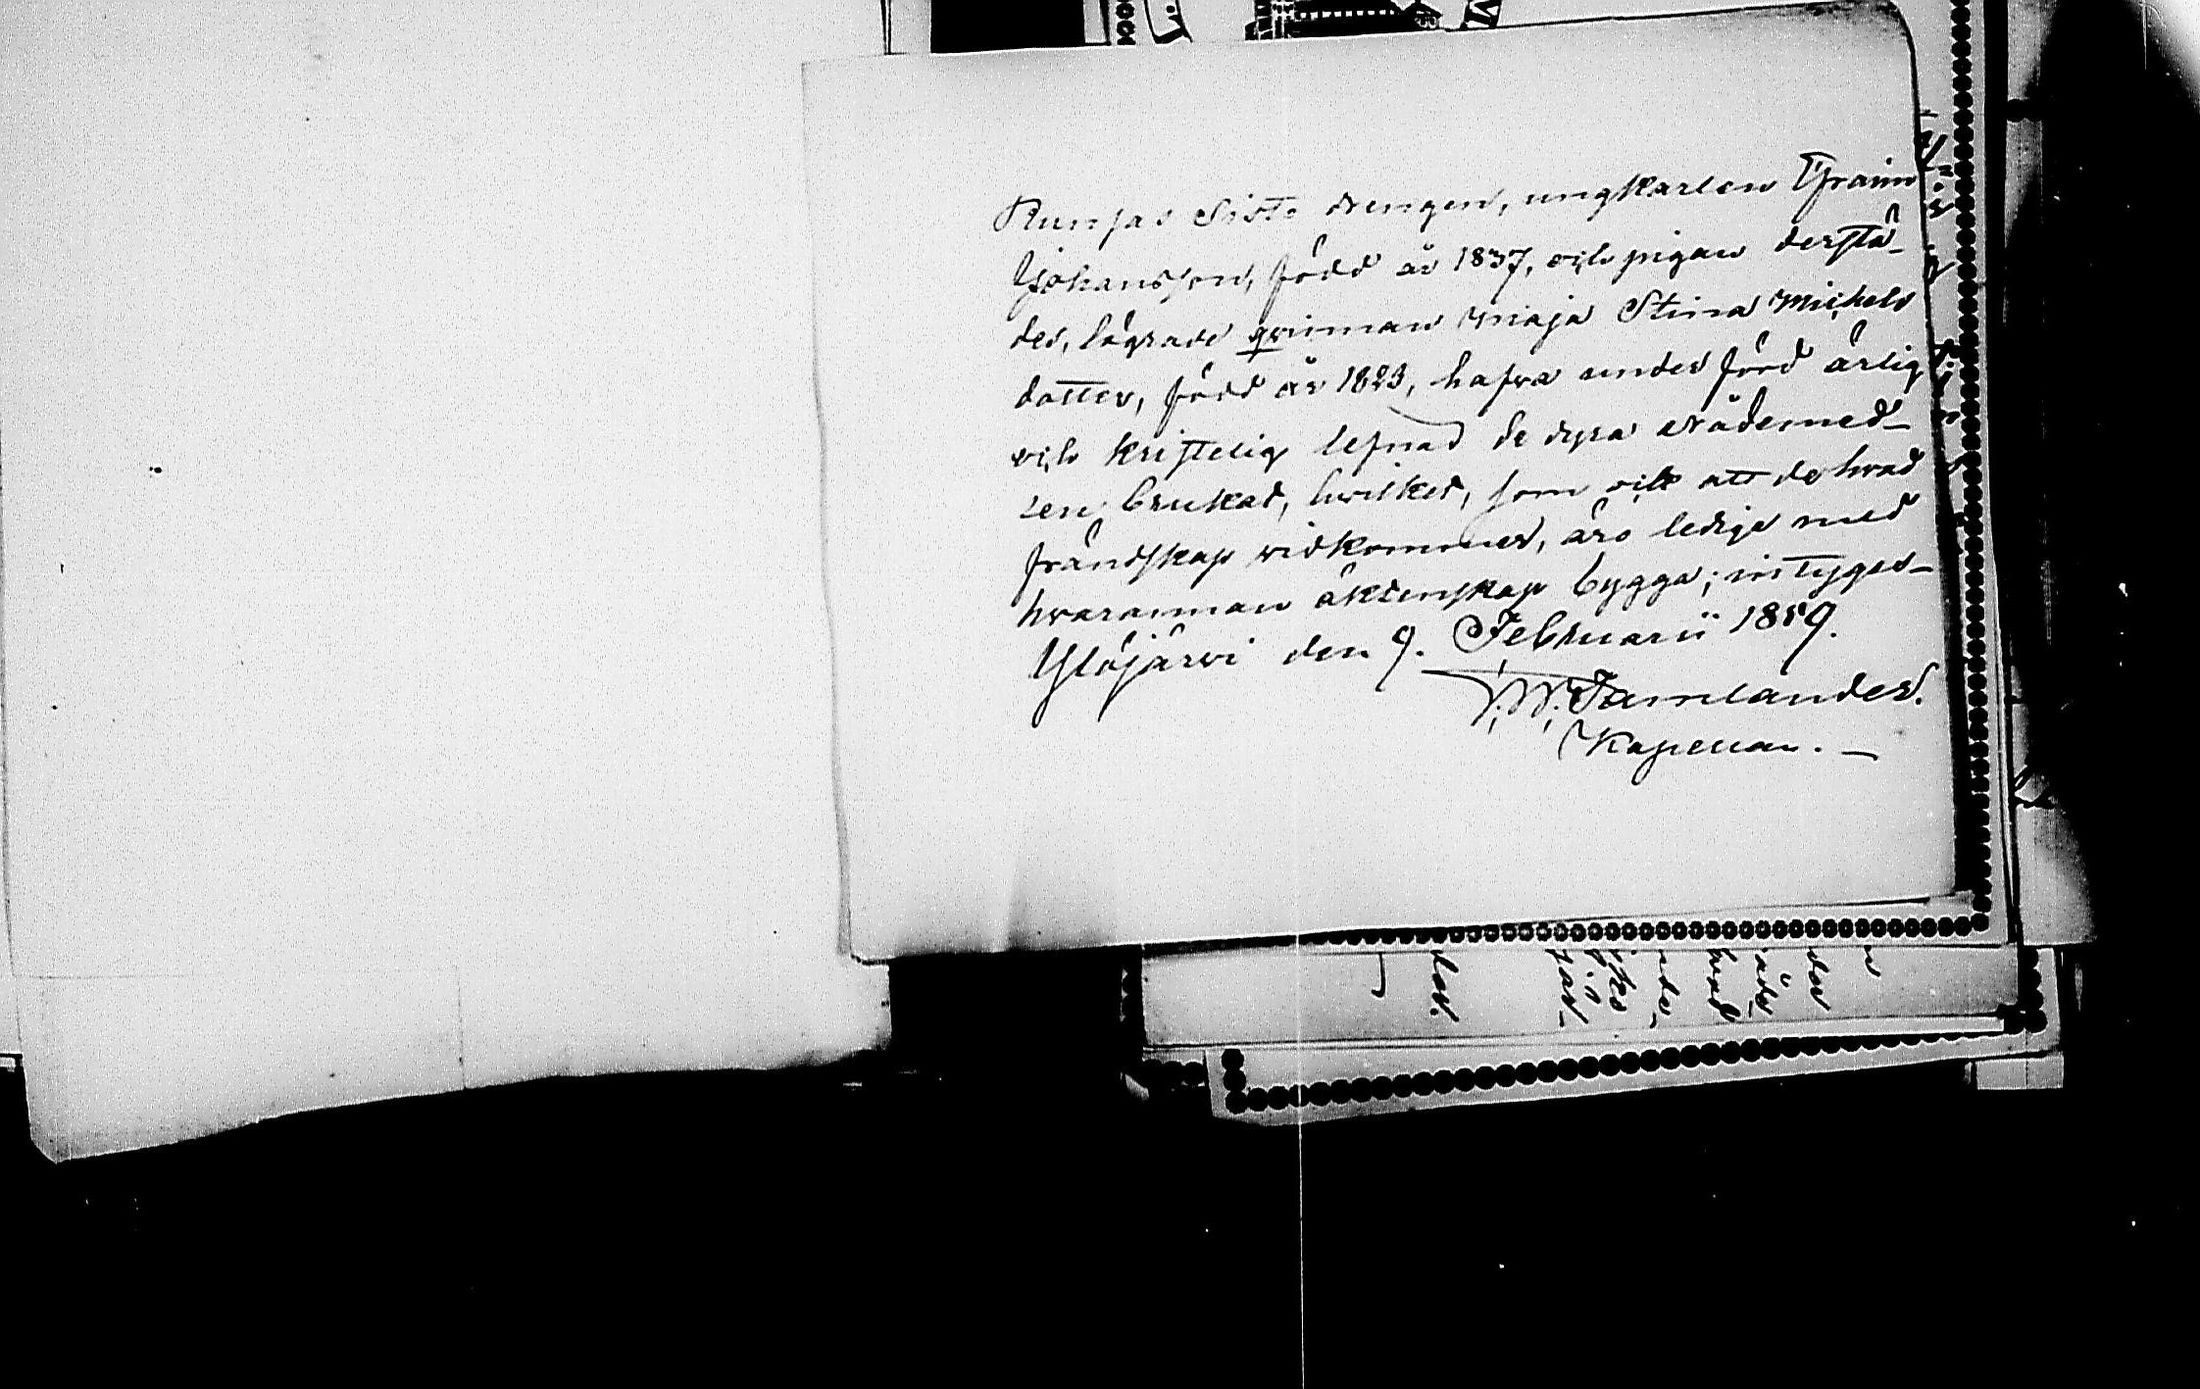 Runsas Sista drengen, ungkarlen Graim
Johansson, född år 1837, och pigan derstä-
des, lägrade qvinnan Maja Stina Michels
dotter, född år 1823, hafva under förd ärlig
och kristelig lefnad de dyra nådemed-
len brukat, hvilket, som ock att de hvad
frändskap vidkommer, äro lediga med
hvarannan äktenskap bygga; intygas-
Ylöjärvi den 9. Februarii 1859.
Kapellan. -